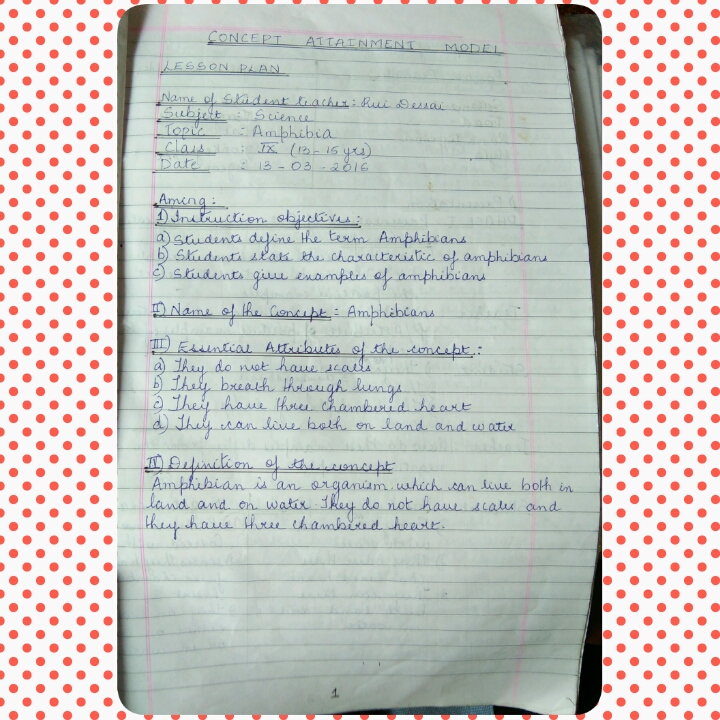 CONCEPT ATTAINMENT MODEL
LESSON PLAN
Name of Student teacher: Rui Dessai
Subject : Science
Topic : Amphibia
Class : IX (13-15 yrs)
Date : 13-03-2016
Among :
1) Instruction objectives :
a) Students define the term Amphibians
b) Students state the characteristic of amphibians
c) Students give examples of amphibians
II) Name of the Concept : Amphibians
III) Essential Attributes of the concept :
a) They do not have scales
b) They breath through lungs
c) They have three chambered heart
d) They can live both on land and water
IV) Definition of the concept
Amphibian is an organism which can live both in
land and on water. They do not have scales and
they have three chambered heart.
1